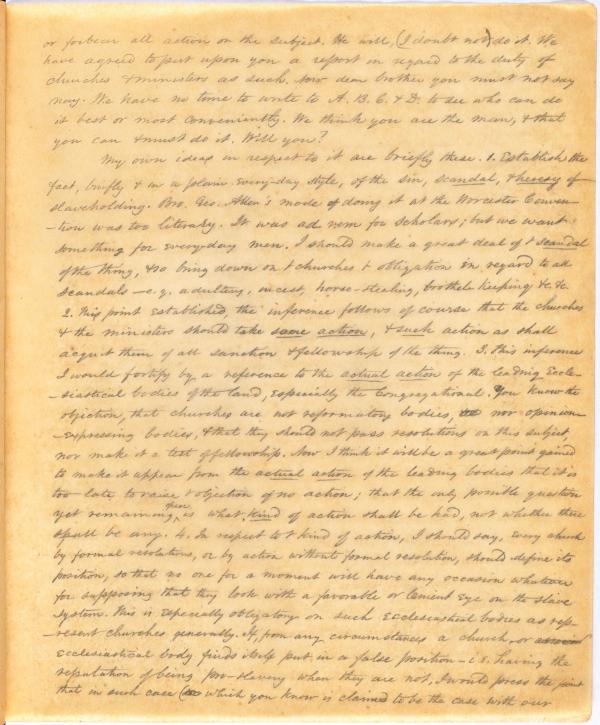 or forbear all action on the subject. He will, (I doubt not) do it. We
have agreed to put upon you a report in regard to the duty of
churches & ministers as such. Now dear brother you must not say
nay. We have no time to write to A. B. C. & D. to see who can do
it best or most conveniently. We think you are the man, & that
you can & must do it. Will you?
My own ideas in respect to it are briefly these. 1. Establish the
fact, briefly & in a plain every-day style, of the sin, scandal, & heresy of
slaveholding. Bro. Geo. Allen's mode of doing it at the Worcester Conven-
-tion was too literary. It was ad rem for scholars; but we want
something for every-day men. I should make a great deal of t scandal
of the thing, & so bring down on t churches t obligation in regard to all
scandals — e.g. adultery, incest, horse-stealing, brothel keeping &c &c.
2. This point established, the inference follows of course that the churches
& the ministers should take some action, & such action as shall
acquit them of all sanction & fellowship of the thing. 3. This inference
I would fortify by a reference to the actual action of the leading Eccle-
-siastical bodies of the land, especially the Congregational. You know the
objection, that churches are not reformatory bodies, nor opinion
-expressing bodies, & that they should not pass resolutions on this subject
nor make it a test of fellowship. Now I think it will be a great point gained
to make it appear from the actual action of the leading bodies that it is
too late to raise t objection of no action; that the only possible question
yet remaining, then, is what kind of action shall be had, not whether there
shall be any. 4. In respect to t kind of action, I should say, every church
by formal resolutions, or by action without formal resolution, should define its
position, so that no one for a moment will have any occasion whatever
for supposing that they look with a favorable or lenient eye on the slave
system. This is especially obligatory on such Ecclesiastical bodies as rep-
-resent churches generally. If, from any circumstances a church, or
Ecclesiastical body finds itself put in a false position — i.e. having the
reputation of being pro-slavery when they are not, I would press the point
that in such case (which you know is claimed to be the case with our